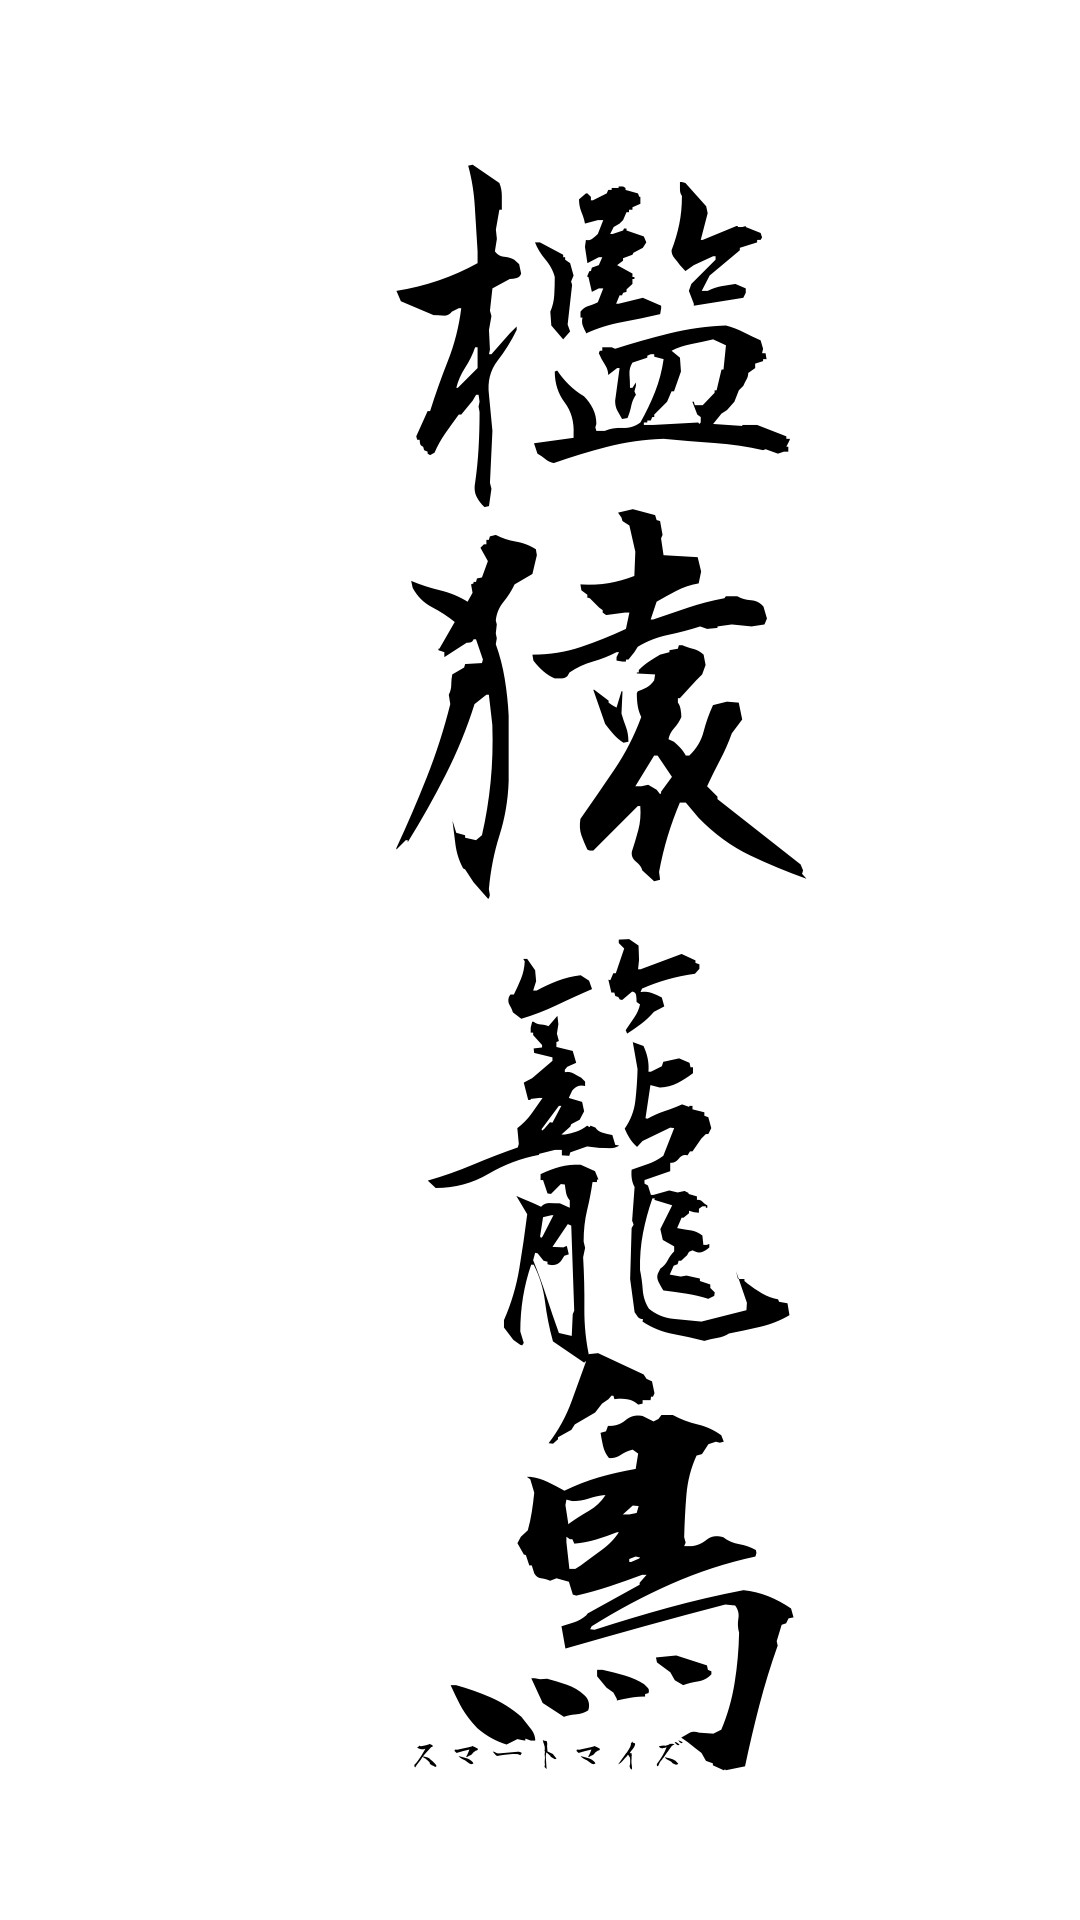 檻猿籠鳥
スマートマイズ